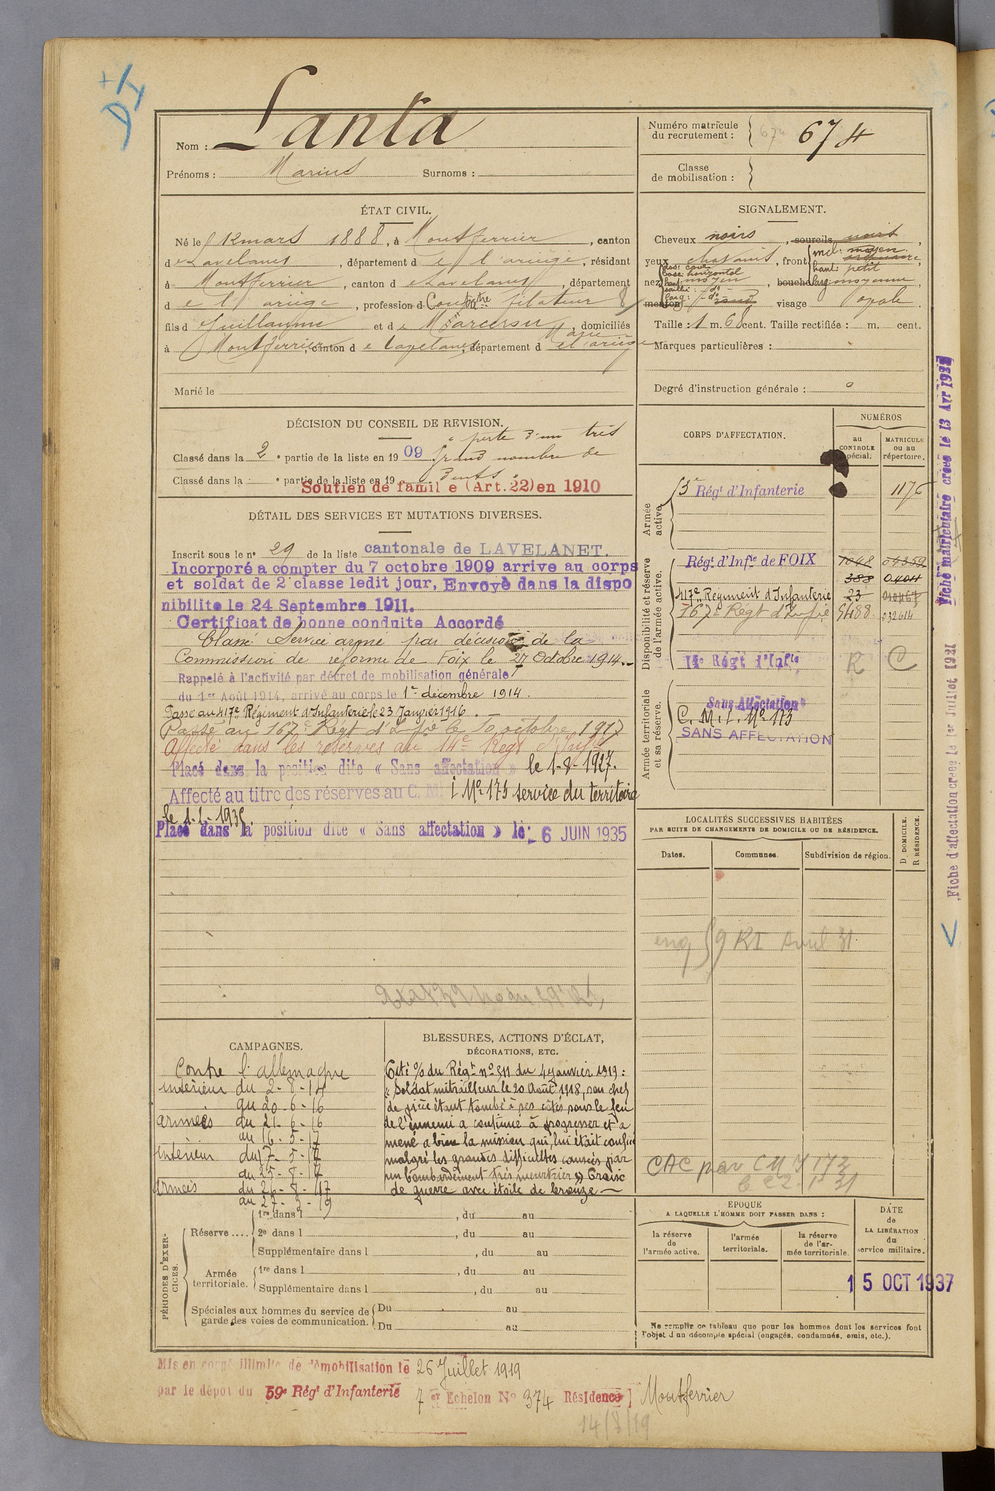 Nom : Lanta
Prénoms : Marius Surnoms :
ÉTAT CIVIL.
Né le 12 mars 1888, à Montferrier, canton
de Lavelanet, département de l'ariège, résidant
à Montferrier, canton de Lavelanet, département
de l'ariège, profession de fileteur
fils de Guillaume et de, domiciliés
à Montferrier, canton de Lavelanet, département de l'ariège
Marié le
Numéro matricule
du recrutement : 674
Classe
de mobilisation :
SIGNALEMENT.
Cheveux noirs, sourcils noirs
yeux chatains, front
nez moyen, bouche moyenne
menton visage ovale
Taille : 1 m. 68 cent. Taille rectifiée : m. cent.
Marques particulières :
Degré d'instruction générale :
DÉCISION DU CONSEIL DE REVISION.
perte d'un très
Classé dans la 2e partie de la liste en 1909 grand nombre de
Classé dans la e partie de la liste en 19 dents
Soutien de famille (Art. 22) en 1910
DÉTAIL DES SERVICES ET MUTATIONS DIVERSES.
Inscrit sous le n° 29 de la liste cantonale de LAVELANET.
Incorporé a compter du 7 octobre 1909 arrive au corps
et soldat de 2e classe ledit jour. Envoyé dans la dispo
nibilite le 24 Septembre 1911.
Certificat de bonne conduite Accordé
Classé Service armé par décision de la
Commission de réforme de Foix le 27 Octobre 1914.
Rappelé à l'activité par décret de mobilisation générale
du 1er Août 1914, arrivé au corps le 1er décembre 1914.
Passé au 417e Régiment d'Infanterie le 23 Janvier 1916.
Passé au 167e Régt d'Infie le 10 octobre 1917
Affecté dans les réserves au 14e Régt d'Infie
Placé dans la position dite « Sans affectation » le 1-8-1927.
Affecté au titre des réserves au C. M. I No 173 service du territoire
le 1-1-1935.
Placé dans la position dite « Sans affectation » le : 6 JUIN 1935
CORPS D'AFFECTATION.
NUMÉROS
au
CONTROLE
spécial.
MATRICULE
ou au
répertoire.
Armée
active.
Régt d'Infanterie 1176
Disponibilité et réserve
de l'armée active.
Régt d'Infie de FOIX 1098
388
417e Régiment d'Infanterie 23
167e Régt d'Infie 9488
14e Régt d'Infie R C
Armée territoriale
et sa réserve.
Sans Affectation
C. M. I. No 173
SANS AFFECTATION
LOCALITÉS SUCCESSIVES HABITÉES
PAR SUITE DE CHANGEMENTS DE DOMICILE OU DE RÉSIDENCE.
Dates. Communes. Subdivision de région.
D. DOMICILE.
R. RÉSIDENCE.
Fiche matriculaire créée le 13 Avr 1937
Fiche d'affectation créée le 1er Juillet 1931
CAMPAGNES.
Contre l'allemagne
intérieur du 2-8-14
au 20-6-16
armées du 21-6-16
au 16-5-17
intérieur du 17-5-17
du 25-8-17
armées du 26-8-17
au 27-3-19
BLESSURES, ACTIONS D'ÉCLAT,
DÉCORATIONS, ETC.
Cité % du Régt no 511 du 4 janvier 1919 :
« Soldat mitrailleur le 20 Août 1918, son chef
de pièce étant tombé à ses côtés sous le feu
de l'ennemi a continué à progresser et a
mené a bien la mission qui lui était confiée
malgré les grandes difficultés causées par
un bombardement très meurtrier » Croix
de guerre avec étoile de bronze
PÉRIODES D'EXERCICES.
Réserve ....
1re dans l , du au
2e dans l , du au
Supplémentaire dans l , du au
Armée
territoriale.
1re dans l , du au
Supplémentaire dans l , du au
Spéciales aux hommes du service de
garde des voies de communication.
Du au
Du au
ÉPOQUE
A LAQUELLE L'HOMME DOIT PASSER DANS :
la réserve
de
l'armée active.
l'armée
territoriale.
la réserve
de l'ar-
mée territoriale.
DATE
de
LA LIBÉRATION
du
service militaire.
15 OCT 1937
Ne remplir ce tableau que pour les hommes dont les services font
l'objet d'un décompte spécial (engagés, condamnés, omis, etc.).
Mis en congé illimité de démobilisation le 26 Juillet 1919
par le dépôt du 59e Régt d'Infanterie 7e Echelon No 374 Résidence Montferrier
14/8/19